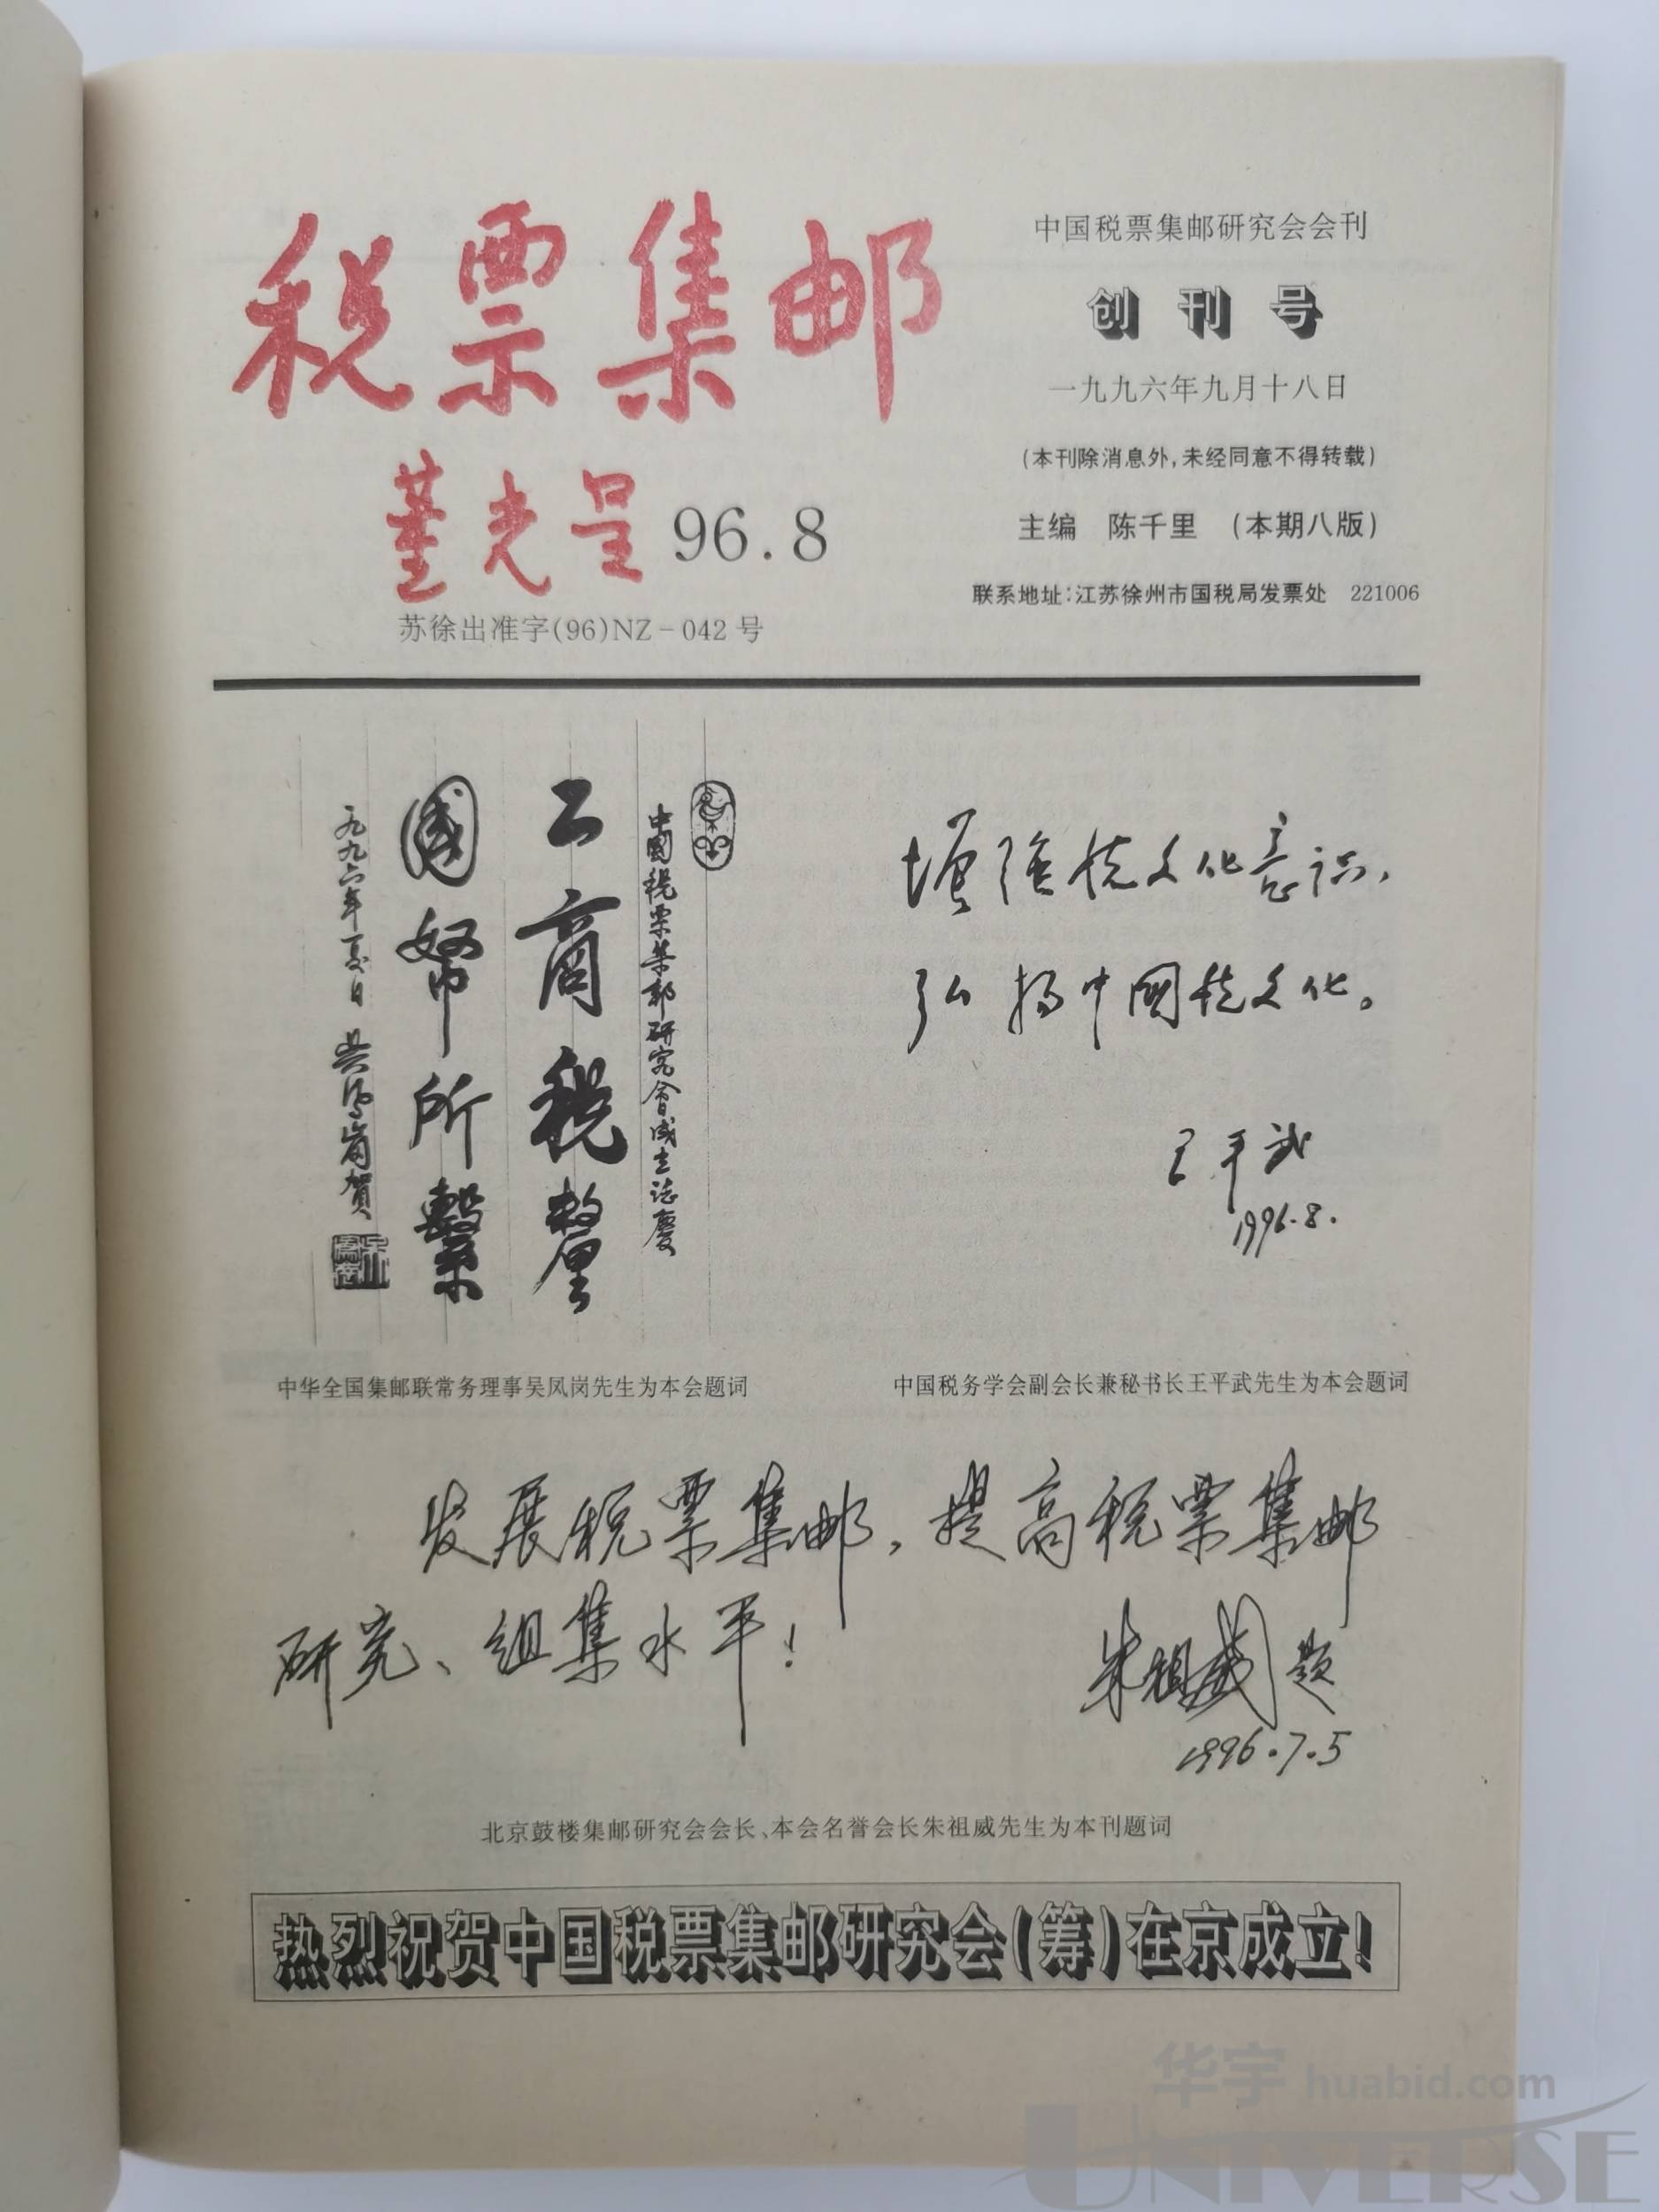 税票集邮
董光呈 96.8
苏徐出准字(96)NZ-042号
中国税票集邮研究会会刊
创刊号
一九九六年九月十八日
(本刊除消息外,未经同意不得转载)
主编 陈千里 (本期八版)
联系地址:江苏徐州市国税局发票处 221006
中國税票集邮研究會成立誌慶
工商税釐
國帑所繫
一九九六年夏日 吴鳳岗賀
增强税文化意识,
弘扬中國税文化。
王平武
1996.8.
中华全国集邮联常务理事吴凤岗先生为本会题词
中国税务学会副会长兼秘书长王平武先生为本会题词
发展税票集邮,提高税票集邮
研究、组集水平!
朱祖威题
1996.7.5
北京鼓楼集邮研究会会长、本会名誉会长朱祖威先生为本刊题词
热烈祝贺中国税票集邮研究会(筹)在京成立!
华宇 huabid.com
UNIVERSE